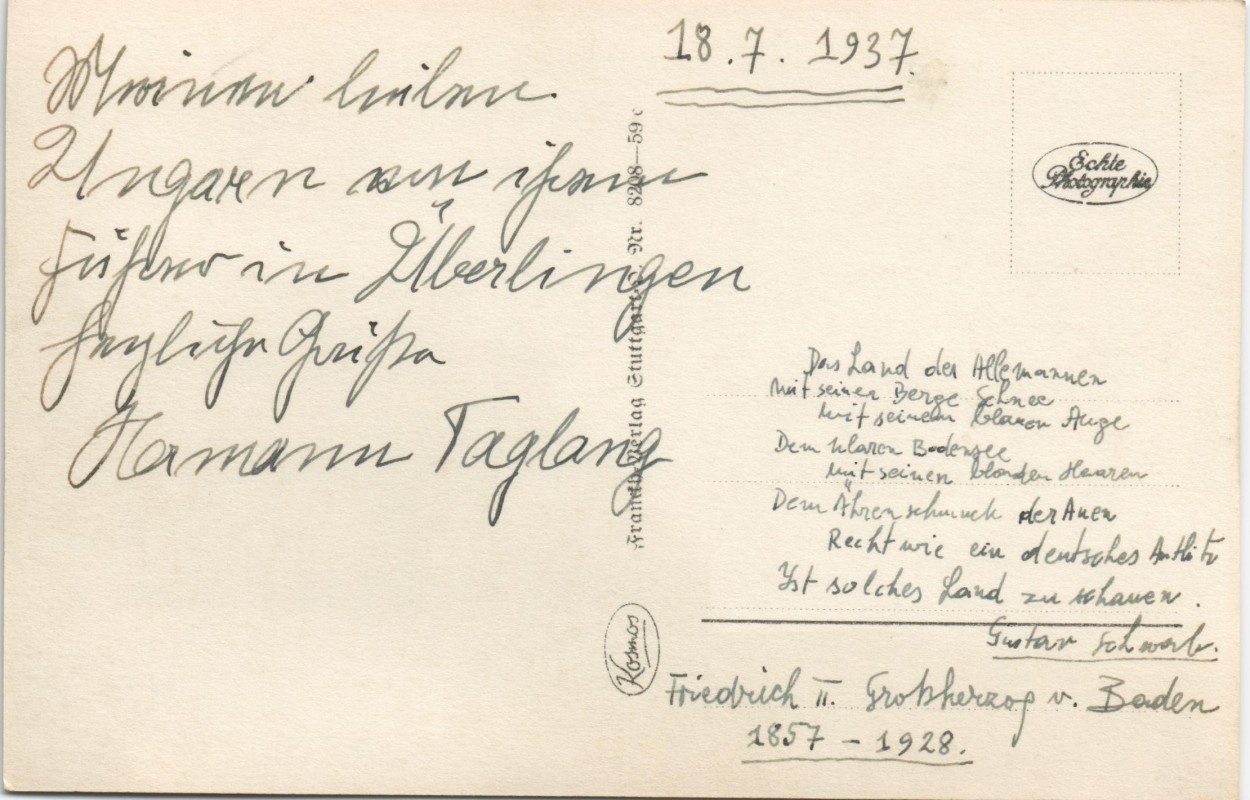 18.7.1937.
Meinen lieben
Ungarn von ihrem
Führer in Überlingen
herzliche Grüße
Hermann Taglang
Franckh-Verlag Stuttgart-O. Nr. 8208—59 c
Kosmos
Echte
Photographie
Das Land der Allemannen
Mit seiner Berge Schnee
Mit seinem blauen Auge
Dem klaren Bodensee
Mit seinen blonden Haaren
Dem Ährenschmuck der Auen
Recht wie ein deutsches Antlitz
Ist solches Land zu schauen.
Gustav Schwab.
Friedrich II. Großherzog v. Baden
1857 – 1928.